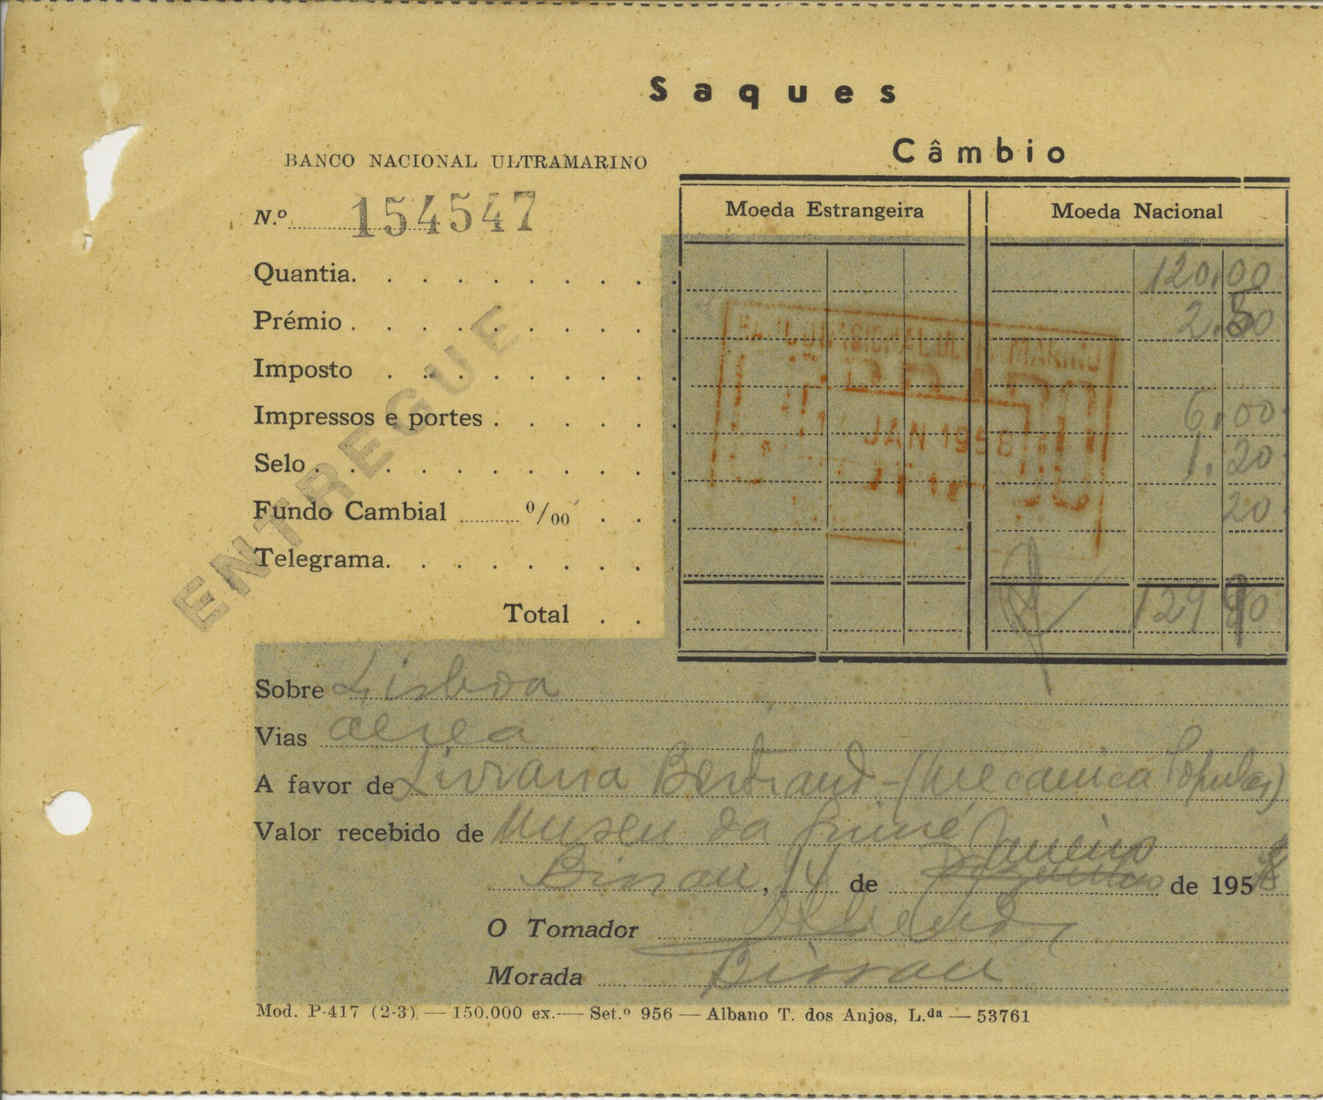 Saques
Câmbio
BANCO NACIONAL ULTRAMARINO
N.º 154547
Moeda Estrangeira Moeda Nacional
Quantia. 120.00
Prémio. 2.50
Imposto
Impressos e portes. 6.00
Selo. 1.20
Fundo Cambial 0/00 20
Telegrama.
Total 129 90
ENTREGUE
BANCO NACIONAL ULTRAMARINO
JAN 1958
Sobre Lisboa
Vias aerea
A favor de Livraria Bertrand - (Mecanica Popular)
Valor recebido de Museu da Guiné
Bissau, 14 de Janeiro de 1958
O Tomador
Morada Bissau
Mod. P-417 (2-3) — 150.000 ex. — Set.º 956 — Albano T. dos Anjos, L.da — 53761